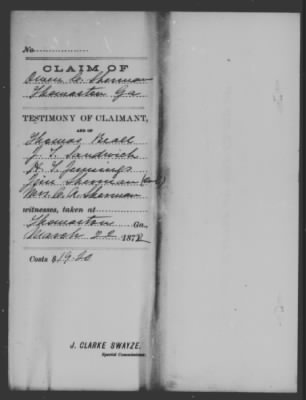 No.
CLAIM OF
Owen C. Sherman
Thomaston Ga
TESTIMONY OF CLAIMANT,
AND OF
Thomas Beall
J. T. Sandwich
H. T. Jennings
Jim Sherman
Mrs. O. C. Sherman
witnesses, taken at
Thomaston Ga.,
March 22 187
Costs $19.60
J. CLARKE SWAYZE,
Special Commissioner.